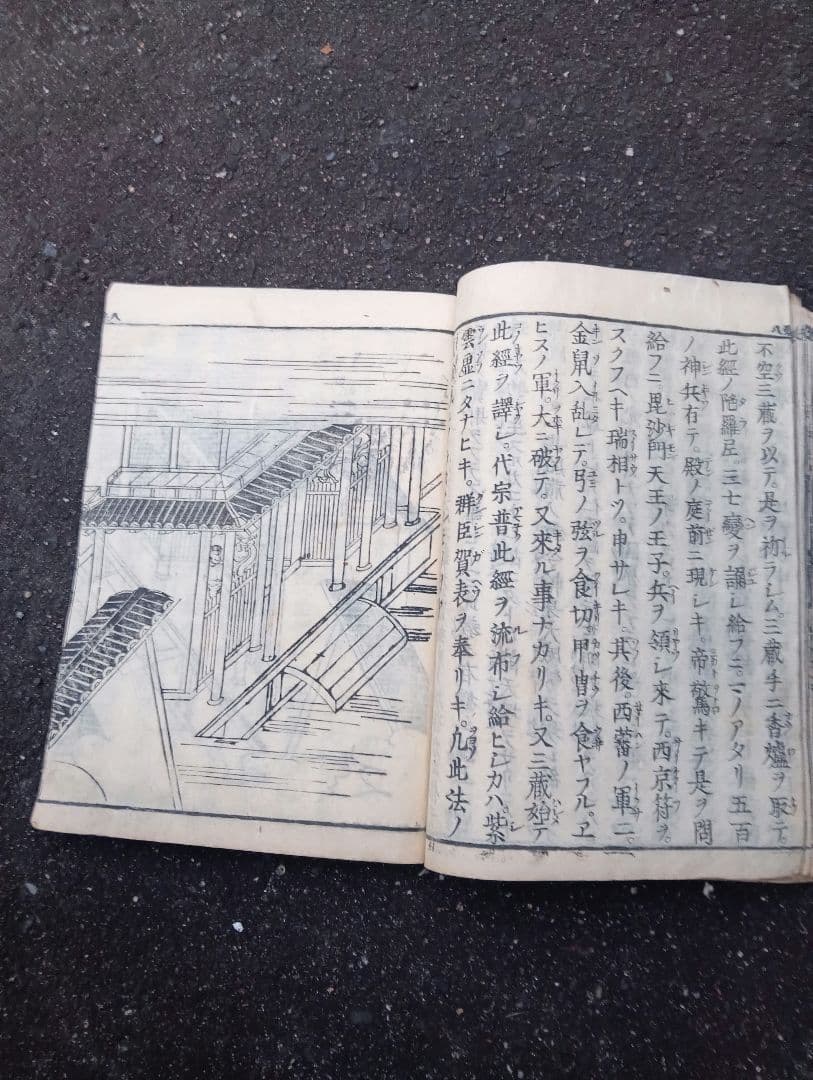 不空三蔵ヲ以テ。是ヲ祈ラシム。三蔵手ニ香爐ヲ取テ。
此經ノ陀羅尼。三七變ヲ誦シ給フニ。マノアタリ五百
ノ神兵有テ。殿ノ庭前ニ現シキ。帝驚キテ是ヲ問
給フニ。毘沙門天王ノ王子。兵ヲ領シ来テ。西京府ヲ。
スクフヘキ瑞相トソ。申サレキ。其後。西蕃ノ軍ニ。
金鼠入乱レテ。弓ノ弦ヲ食切甲冑ヲ食ヤフル。ヱ
ヒスノ軍。大ニ破テ。又来ル事ナカリキ。又三蔵始テ
此經ヲ譯シ。代宗普此經ヲ流布シ給ヒシカハ。紫
雲虚ニタナヒキ。群臣賀表ヲ奉リキ。凢此法ノ